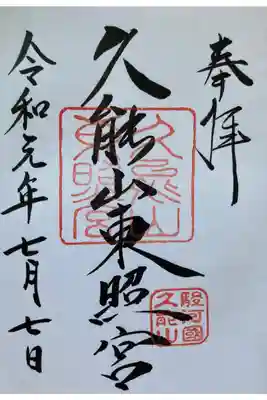 奉拝
久能山東照宮
久能山東照宮
駿河國
久能山
令和元年七月七日